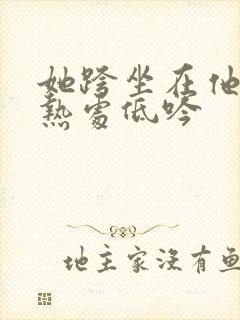 她跨坐在他
热处低吟
地主家没有鱼